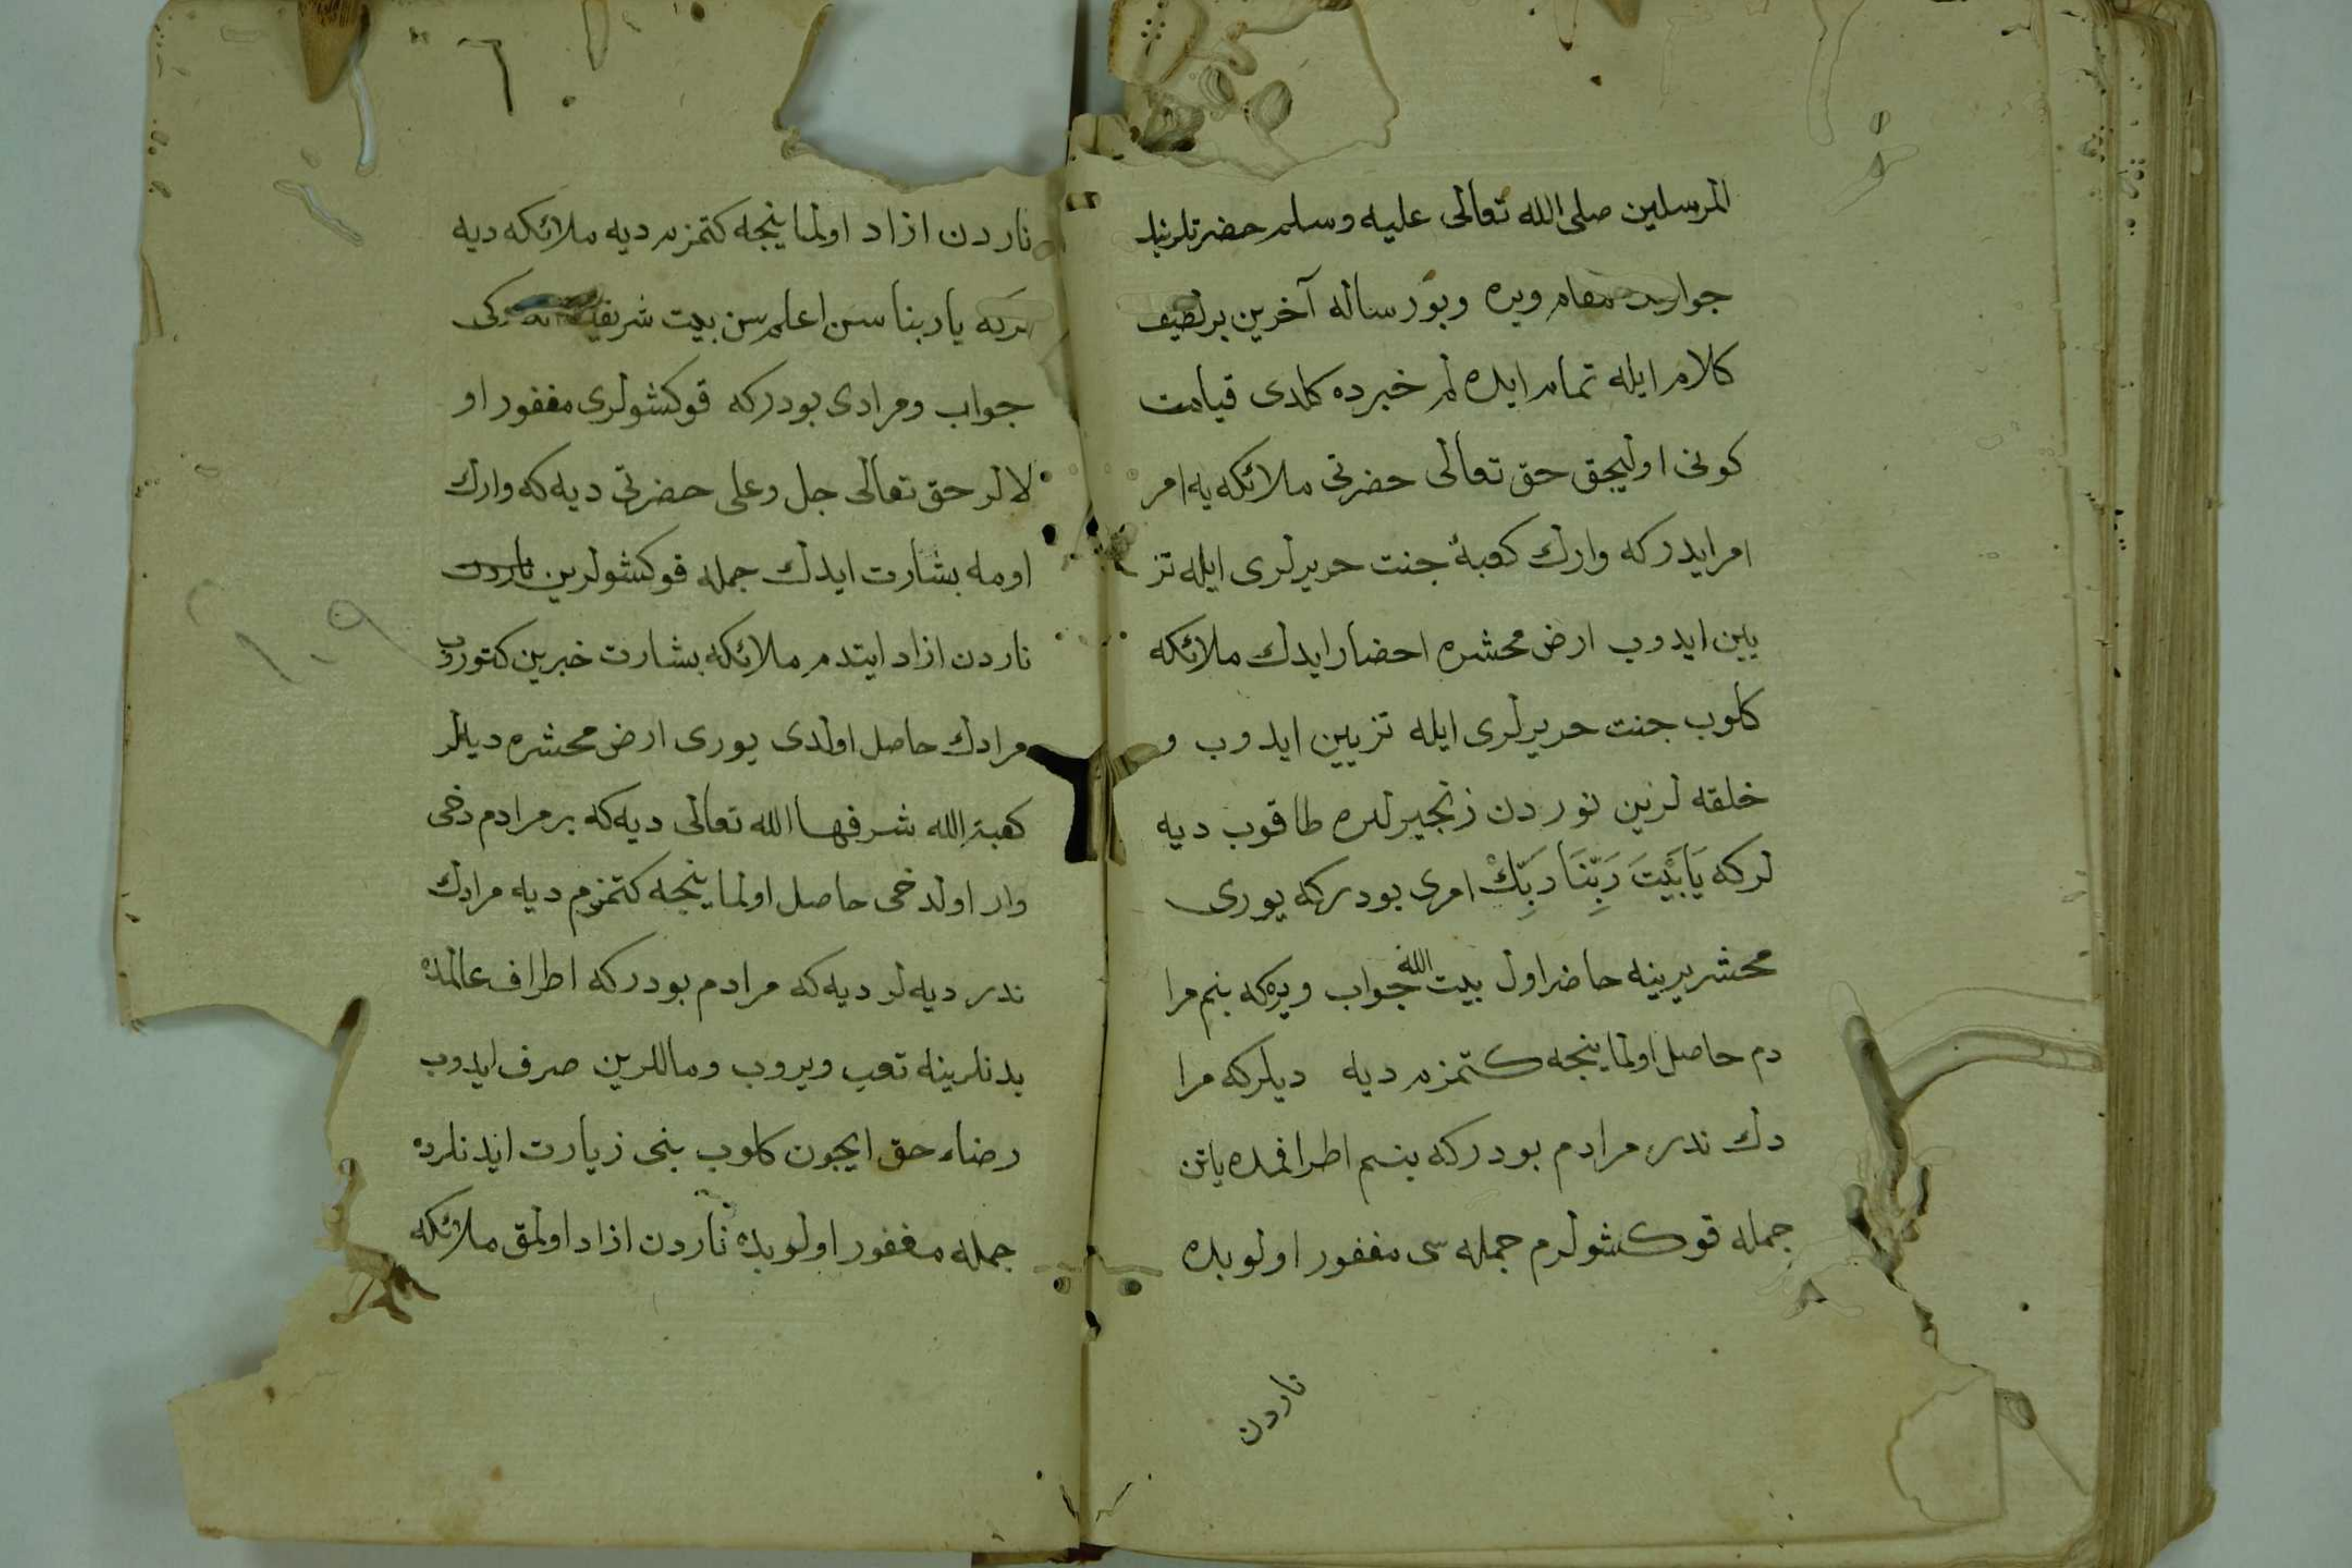 المرسلين صلى الله تعالى عليه وسلم حضرتلرينك
جوارنده مقام ويره وبو رساله آخرين بر لطيف
كلام ايله تمام ايده لم خبرده كلدى قيامت
كونى اوليجق حق تعالى حضرتى ملائكه يه امر
امر ايدركه وارك كعبۀ جنت حريرلرى ايله تز
يين ايدوب ارض محشره احضار ايدك ملائكه
كلوب جنت حريرلرى ايله تزيين ايدوب و
خلقه لرين نوردن زنجيرلره طاقوب ديه
لركه يَابَيْتَ رَبِّنَا رَبِّكْ امرى بودركه يورى
محشر يرينه حاضر اول بيت الله جواب ويره كه بنم مرا
دم حاصل اولماينجه كتمزم ديه ديلركه مرا
دك ندر مرادم بودركه بنم اطرافمده ياتن
جمله قوكشولرم جمله سى مغفور اولوبده
ناردن
ناردن ازاد اولماينجه كتمزم ديه ملائكه ديه
لركه ياربنا سن اعلم سن بيت شريفك كى
جواب ومرادى بودركه قوكشولرى مغفور او
لالر حق تعالى جل وعلى حضرتى ديه كه وارك
اومه بشارت ايدك جمله قوكشولرين ناردن
ناردن ازاد ايتدم ملائكه بشارت خبرين كتوروب
مرادك حاصل اولدى يورى ارض محشره ديلر
كعبة الله شرفها الله تعالى ديه كه بر مرادم دخى
وار اولدخى حاصل اولماينجه كتمزم ديه مرادك
ندر ديه لر ديه كه مرادم بودركه اطراف عالمده
بدنلرينه تعب ويروب وماللرين صرف ايدوب
رضاء حق ايچون كلوب بنى زيارت ايدنلرده
جمله مغفور اولوبده ناردن ازاد اولمق ملائكه
١٠٩